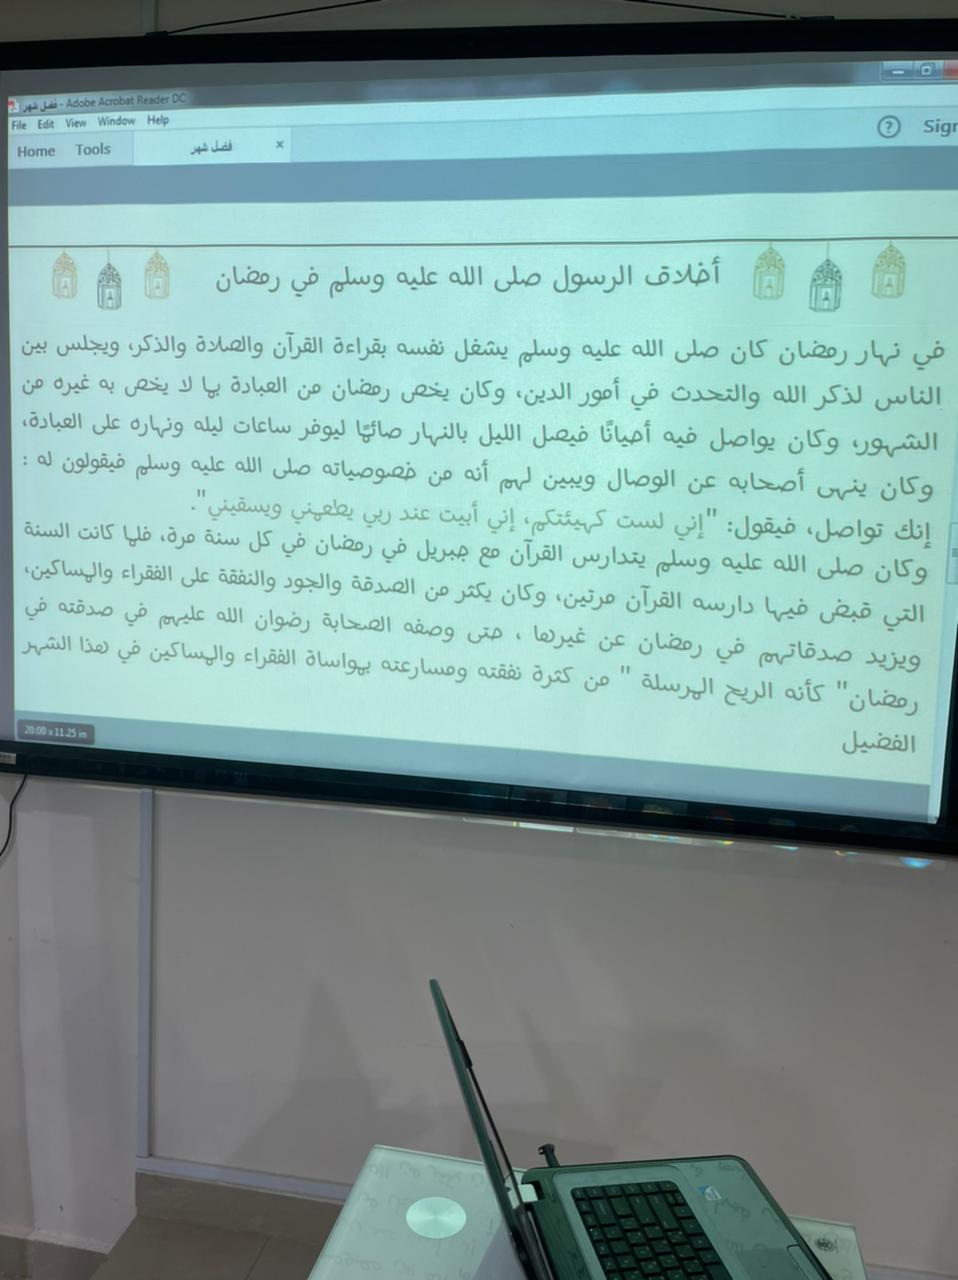 فضل شهر - Adobe Acrobat Reader DC
File Edit View Window Help
Home Tools فضل شهر × ? Sign
أخلاق الرسول صلى الله عليه وسلم في رمضان
في نهار رمضان كان صلى الله عليه وسلم يشغل نفسه بقراءة القرآن والصلاة والذكر، ويجلس بين
الناس لذكر الله والتحدث في أمور الدين، وكان يخص رمضان من العبادة بما لا يخص به غيره من
الشهور، وكان يواصل فيه أحيانًا فيصل الليل بالنهار صائمًا ليوفر ساعات ليله ونهاره على العبادة،
وكان ينهى أصحابه عن الوصال ويبين لهم أنه من خصوصياته صلى الله عليه وسلم فيقولون له :
إنك تواصل، فيقول: "إني لست كهيئتكم، إني أبيت عند ربي يطعمني ويسقيني".
وكان صلى الله عليه وسلم يتدارس القرآن مع جبريل في رمضان في كل سنة مرة، فلما كانت السنة
التي قبض فيها دارسه القرآن مرتين، وكان يكثر من الصدقة والجود والنفقة على الفقراء والمساكين،
ويزيد صدقاتهم في رمضان عن غيرها ، حتى وصفه الصحابة رضوان الله عليهم في صدقته في
رمضان" كأنه الريح المرسلة " من كثرة نفقته ومسارعته بمواساة الفقراء والمساكين في هذا الشهر
الفضيل
20.00 x 11.25 in